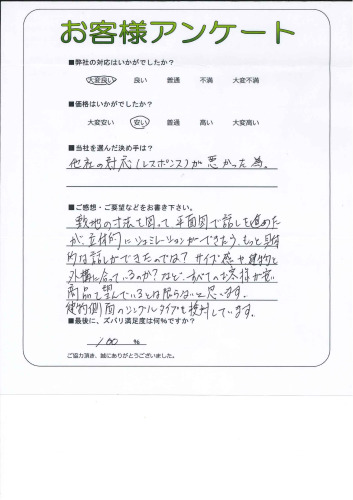 お客様アンケート
■弊社の対応はいかがでしたか?
大変良い 良い 普通 不満 大変不満
■価格はいかがでしたか?
大変安い 安い 普通 高い 大変高い
■当社を選んだ決め手は?
他社の対応(レスポンス)が悪かった為。
■ご感想・ご要望などをお書き下さい。
敷地の寸法を図って、平面図で話しを進めた
が、立体的にシュミレーションができたら、もっと具体
的な話しができたのでは?サイズ感や建物と
外構に合っているのか?など、すべてのお客様が安い
商品を望んでいるとは限らないと思います。
建物側面のシングルタイプも検討しています。
■最後に、ズバリ満足度は何%ですか?
100 %
ご協力頂き、誠にありがとうございました。